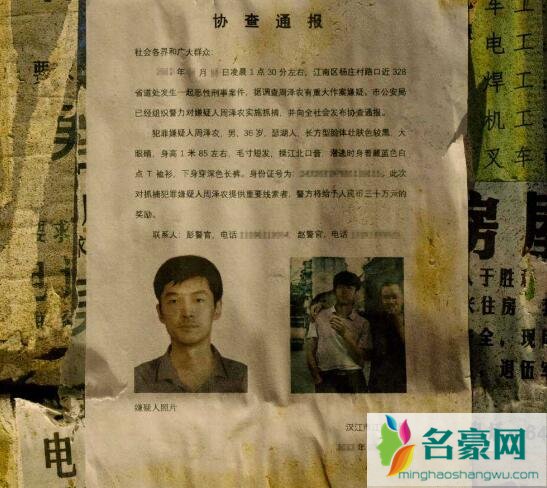 协查通报
社会各界和广大群众：
日凌晨1点30分左右，江南区杨庄村路口近328
省道处发生一起恶性刑事案件，据调查周泽农有重大作案嫌疑。市公安局
已经组织警力对嫌疑人周泽农实施抓捕，并向全社会发布协查通报。
犯罪嫌疑人周泽农，男，36岁，瑟湖人，长方型脸体壮肤色较黑，大
眼睛，身高1米85左右，毛寸短发，操江北口音，潜逃时身着藏蓝色白
点T恤衫，下身穿深色长裤。身份证号为：
，此次
对抓捕犯罪嫌疑人周泽农提供重要线索者，警方将给予人民币三十万元的
奖励。
联系人：彭警官，电话
赵警官，电话
嫌疑人照片
汉江市江
年
要求
电
车
电
焊
机
叉
工
工
工
工
车
房
康
人于胜
米住房
全，现
退伍
名豪网
minghaoshangwu.com